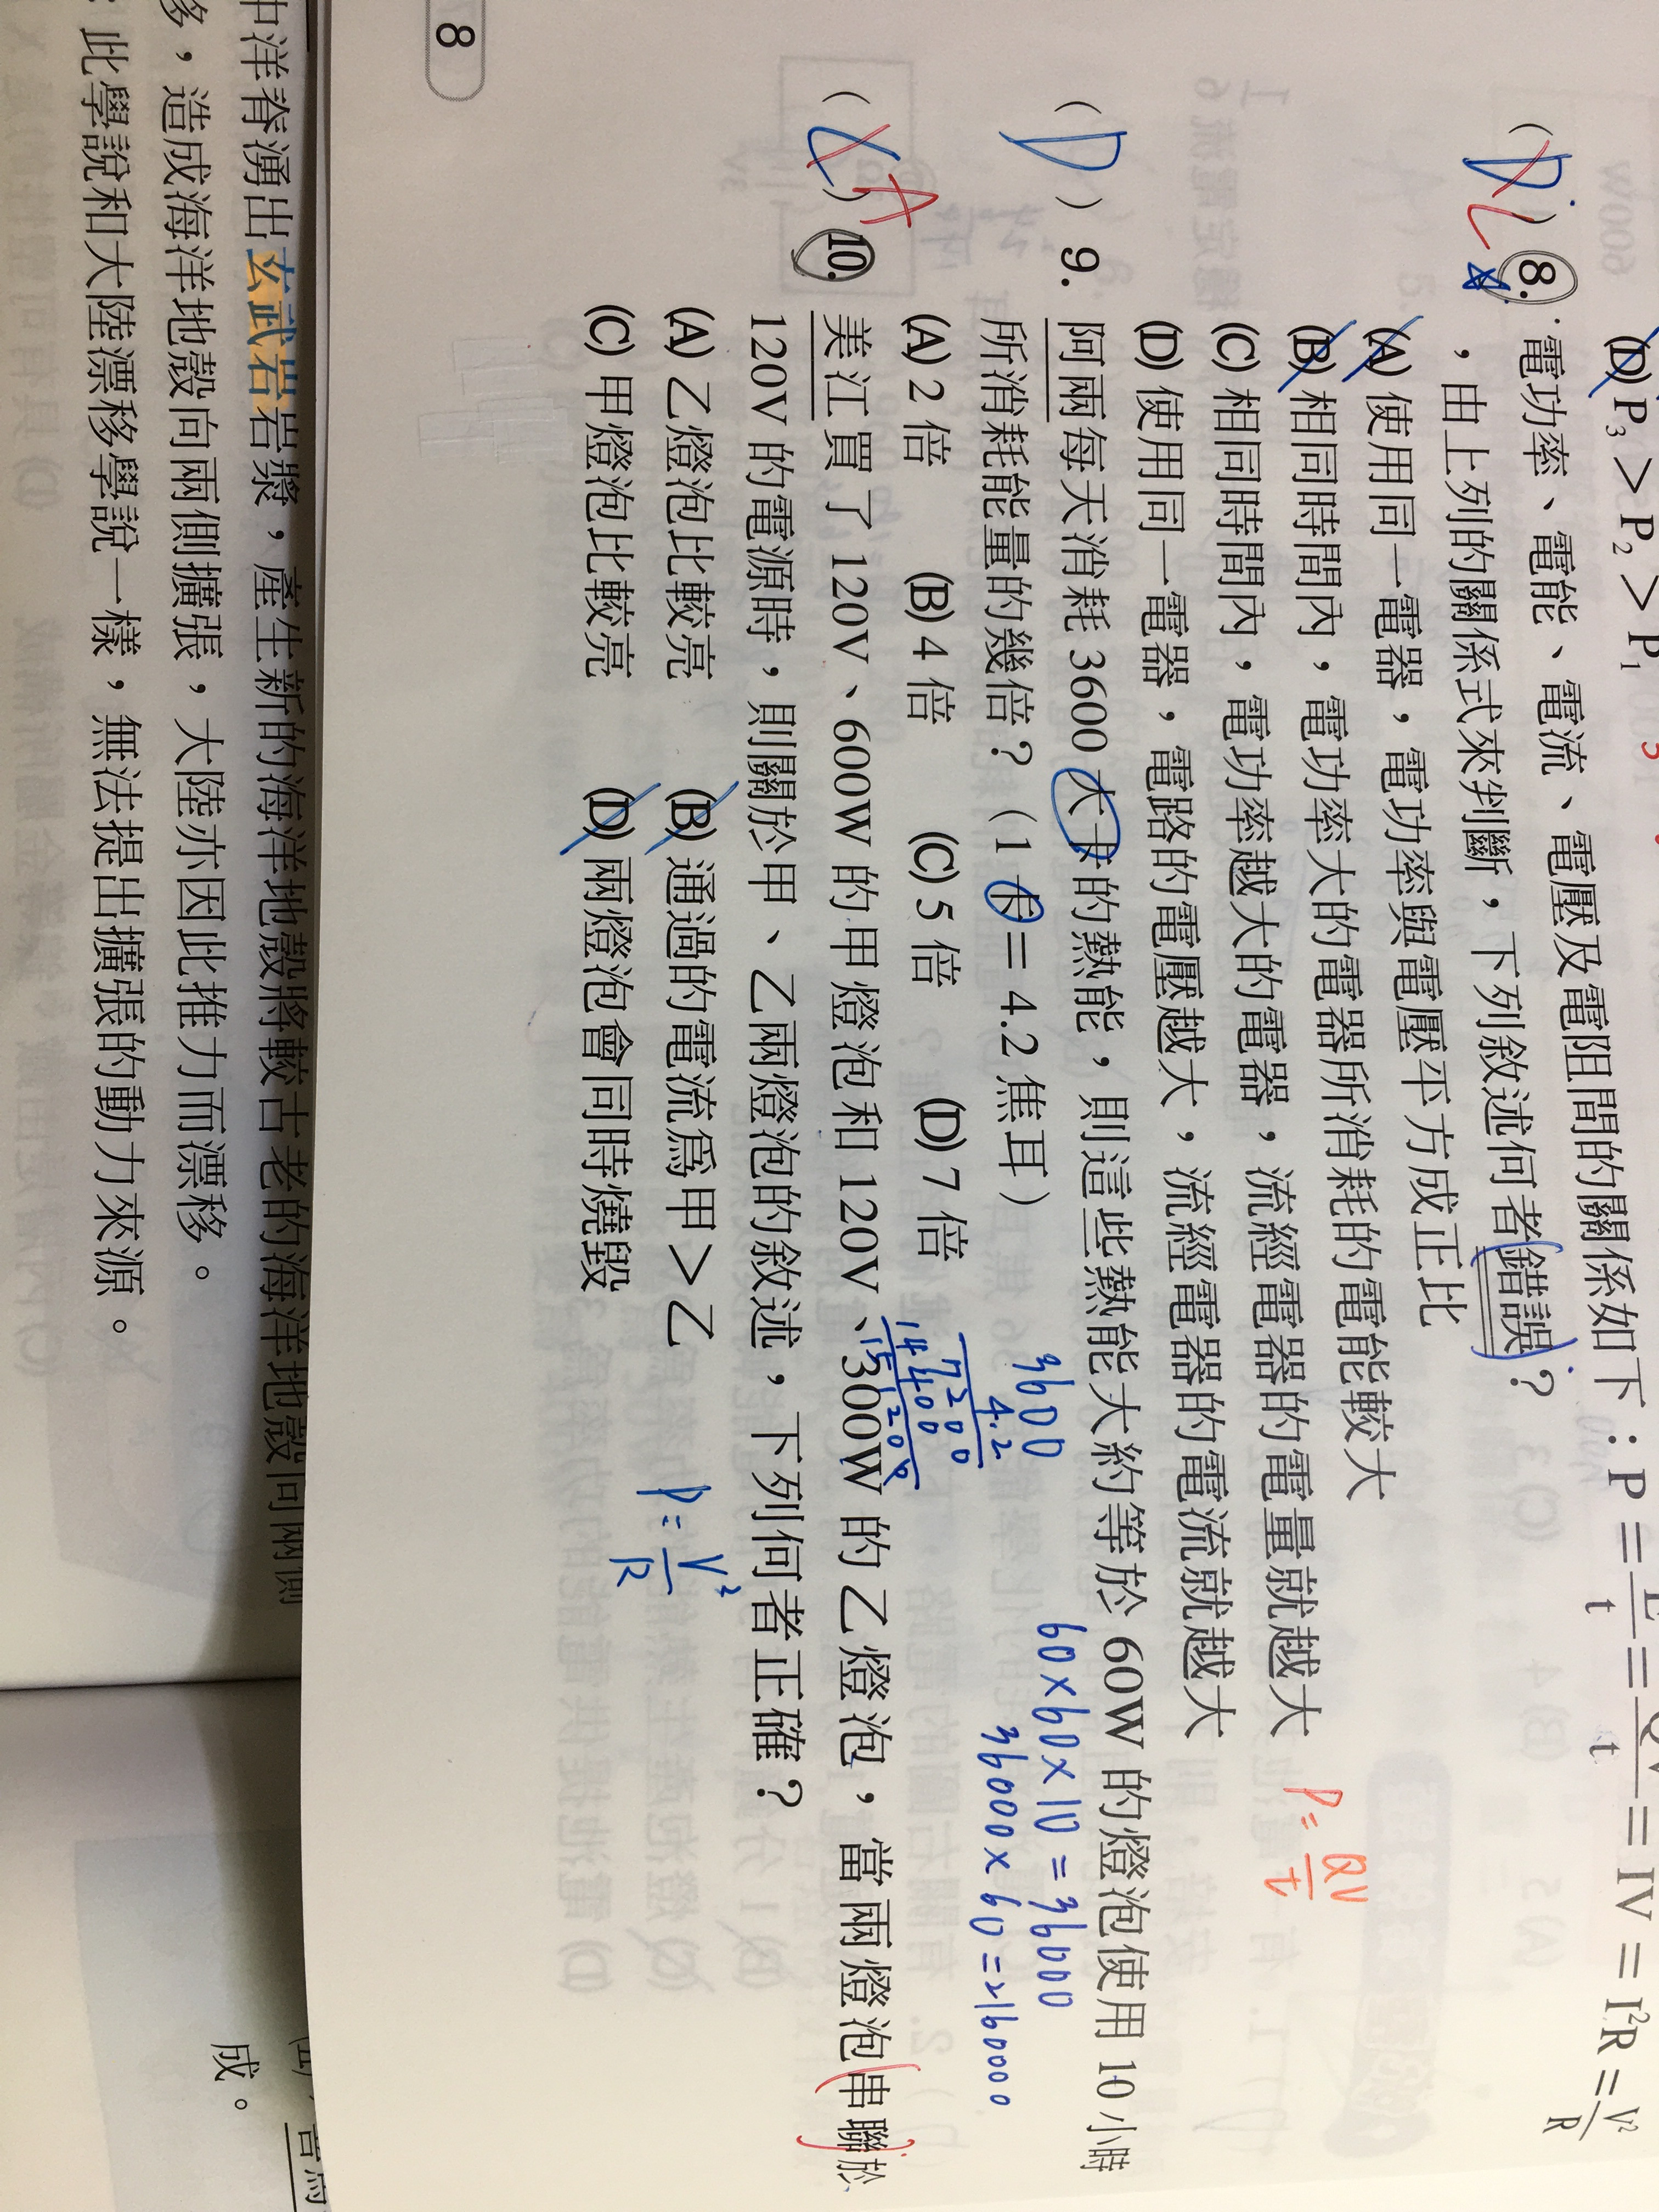 (D) P₃ > P₂ > P₁
(D) C 8. 電功率、電能、電流、電壓及電阻間的關係如下：P = E/t = QV/t = IV = I²R = V²/R
，由上列的關係式來判斷，下列敘述何者錯誤？
(A) 使用同一電器，電功率與電壓平方成正比
(B) 相同時間內，電功率大的電器所消耗的電能較大
(C) 相同時間內，電功率越大的電器，流經電器的電量就越大
P = QV/t
(D) 使用同一電器，電路的電壓越大，流經電器的電流就越大
(D) 9. 阿兩每天消耗 3600 大卡的熱能，則這些熱能大約等於 60W 的燈泡使用 10 小時
所消耗能量的幾倍？（1 卡＝4.2 焦耳）
3600
4.2
7200
14400
15120
60×60×10=36000
36000×60=2160000
(A) 2 倍 (B) 4 倍 (C) 5 倍 (D) 7 倍
(C) A 10. 美江買了 120V、600W 的甲燈泡和 120V、300W 的乙燈泡，當兩燈泡串聯於
120V 的電源時，則關於甲、乙兩燈泡的敘述，下列何者正確？
(A) 乙燈泡比較亮 (B) 通過的電流爲甲＞乙
P = V²/R
(C) 甲燈泡比較亮 (D) 兩燈泡會同時燒毀
8
中洋脊湧出玄武岩岩漿，產生新的海洋地殼將較古老的海洋地殼向兩側
移，造成海洋地殼向兩側擴張，大陸亦因此推力而漂移。
：此學說和大陸漂移學說一樣，無法提出擴張的動力來源。
成。